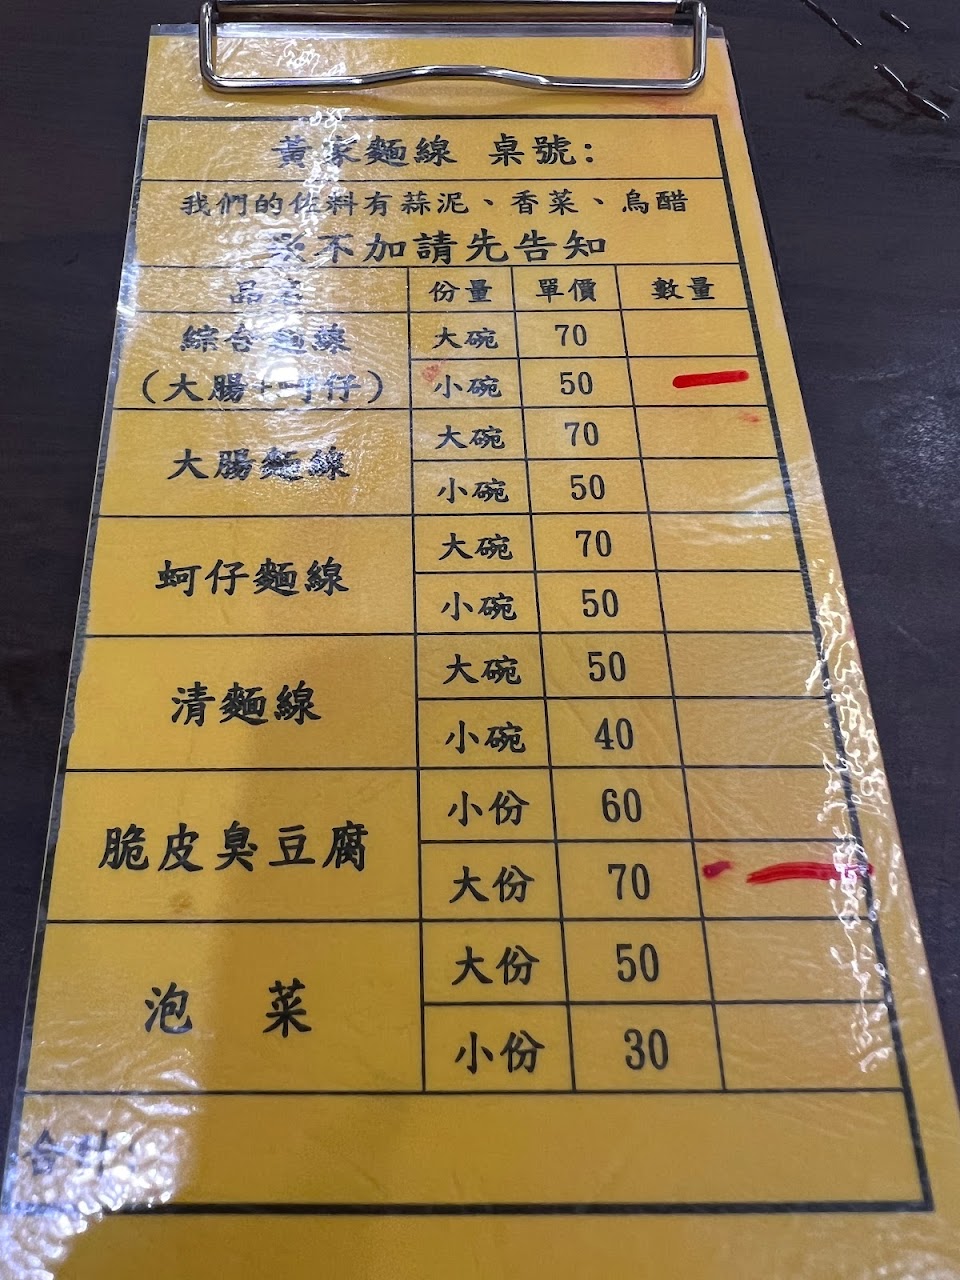 黃家麵線 桌號:
我們的佐料有蒜泥、香菜、烏醋
不加請先告知
品名 份量 單價 數量
綜合麵線 大碗 70
(大腸+蚵仔) 小碗 50 一
大腸麵線 大碗 70
小碗 50
蚵仔麵線 大碗 70
小碗 50
清麵線 大碗 50
小碗 40
脆皮臭豆腐 小份 60
大份 70 一
泡 菜 大份 50
小份 30
合計: